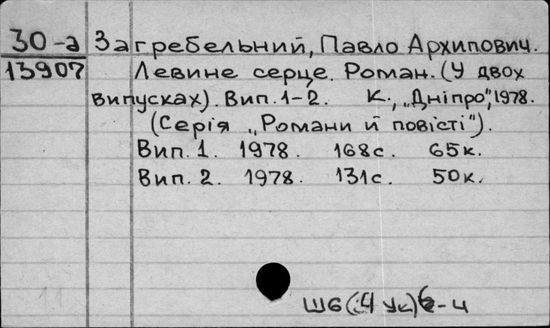 30-а Загребельний, Павло Архипович.
13907 Левине серце. Роман. (У двох
випусках). Вип. 1-2. К., „Дніпро", 1978.
(Серія „Романи й повісті").
Вип. 1. 1978. 168с. 65к.
Вип. 2. 1978. 131с. 50к.
Ш6(4Ук)6-4